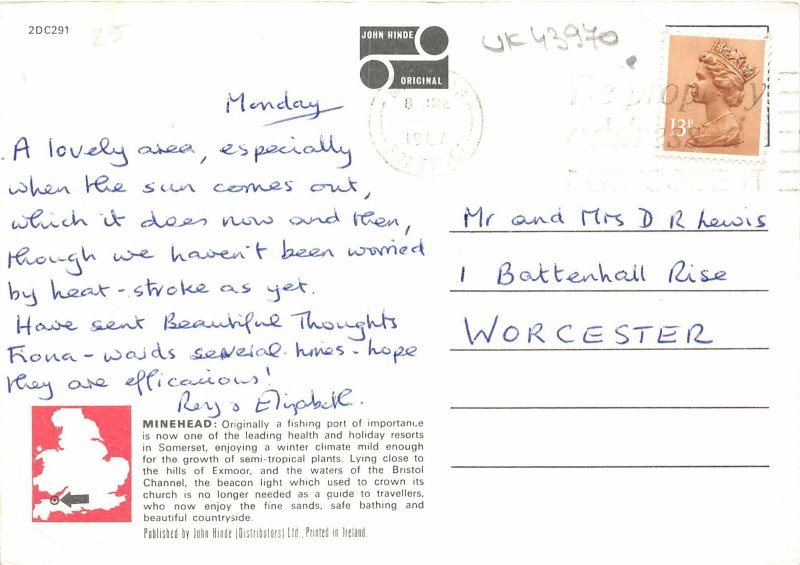 2DC291
25
JOHN HINDE
ORIGINAL
UK43970
8 JNE
1987
Be properly
addressed
POSTCODE IT
13P
Monday
A lovely area, especially
when the sun comes out,
which it does now and then,
though we haven't been worried
by heat-stroke as yet.
Have sent Beautiful Thoughts
Fiona-wards several times - hope
they are efficacious!
Elizabeth.
Mr and Mrs D R Lewis
1 Battenhall Rise
WORCESTER
MINEHEAD: Originally a fishing port of importance
is now one of the leading health and holiday resorts
in Somerset, enjoying a winter climate mild enough
for the growth of semi-tropical plants. Lying close to
the hills of Exmoor, and the waters of the Bristol
Channel, the beacon light which used to crown its
church is no longer needed as a guide to travellers,
who now enjoy the fine sands, safe bathing and
beautiful countryside.
Published by John Hinde (Distributors) Ltd., Printed in Ireland.